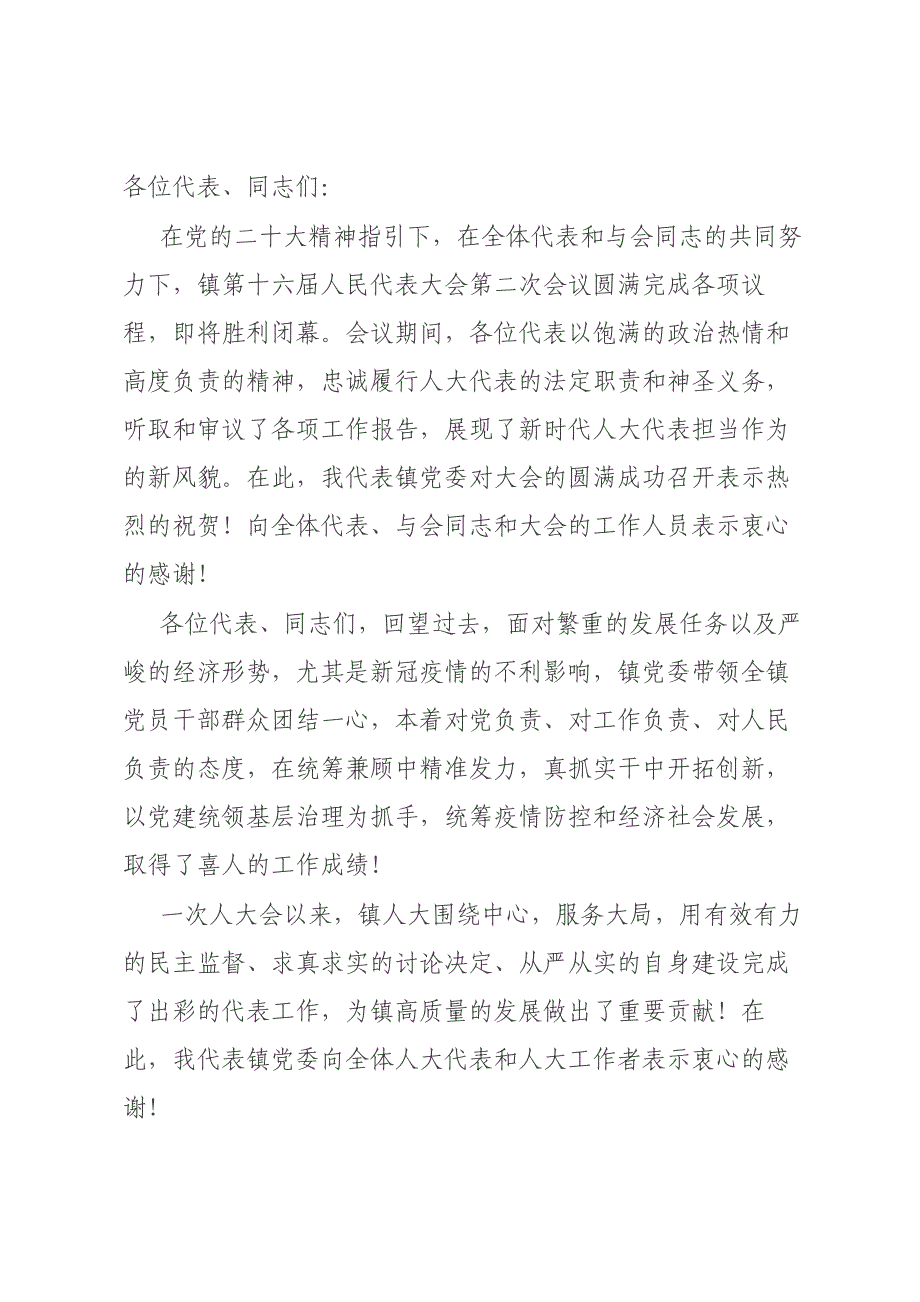 各位代表、同志们：
在党的二十大精神指引下，在全体代表和与会同志的共同努
力下，镇第十六届人民代表大会第二次会议圆满完成各项议
程，即将胜利闭幕。会议期间，各位代表以饱满的政治热情和
高度负责的精神，忠诚履行人大代表的法定职责和神圣义务，
听取和审议了各项工作报告，展现了新时代人大代表担当作为
的新风貌。在此，我代表镇党委对大会的圆满成功召开表示热
烈的祝贺！向全体代表、与会同志和大会的工作人员表示衷心
的感谢！
各位代表、同志们，回望过去，面对繁重的发展任务以及严
峻的经济形势，尤其是新冠疫情的不利影响，镇党委带领全镇
党员干部群众团结一心，本着对党负责、对工作负责、对人民
负责的态度，在统筹兼顾中精准发力，真抓实干中开拓创新，
以党建统领基层治理为抓手，统筹疫情防控和经济社会发展，
取得了喜人的工作成绩！
一次人大会以来，镇人大围绕中心，服务大局，用有效有力
的民主监督、求真求实的讨论决定、从严从实的自身建设完成
了出彩的代表工作，为镇高质量的发展做出了重要贡献！在
此，我代表镇党委向全体人大代表和人大工作者表示衷心的感
谢！